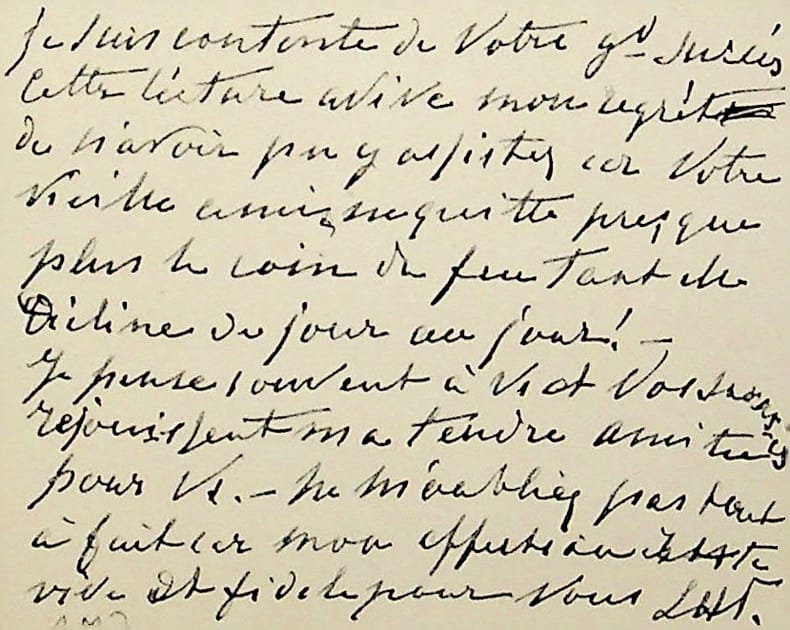 Je suis contente de Votre gd succès
Cette lecture avive mon regrèt
de n'avoir pu y assister car Votre
vieille amie, ne quitte presque
plus le coin du feu Tant elle
Décline de jour au jour! -
Je pense souvent à Vs et Vos succès
rejouissent ma tendre amitié
pour Vs. - ne m'oubliez pas tout
à fait car mon affection
vive et fidele pour Vous LHT.